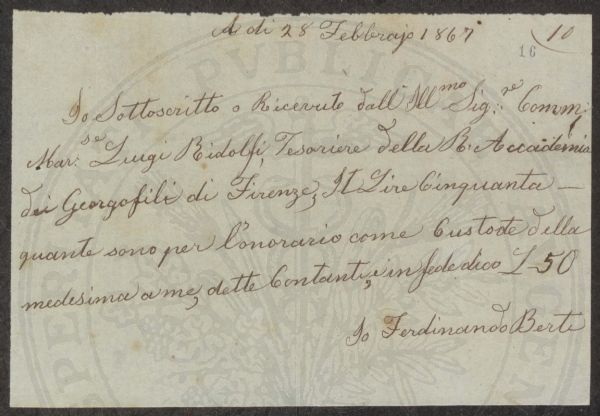 A di 28 Febbrajo 1867
10
16
Io Sottoscritto o Ricevuto dall' Ill.mo Sig.re Comm:
Mar.se Luigi Ridolfi, Tesoriere della R. Accademia
dei Georgofili di Firenze, It Lire Cinquanta —
quante sono per l'onorario come Custode della
medesima a me, dette Contanti, e in fede dico L 50
Io Ferdinando Berti